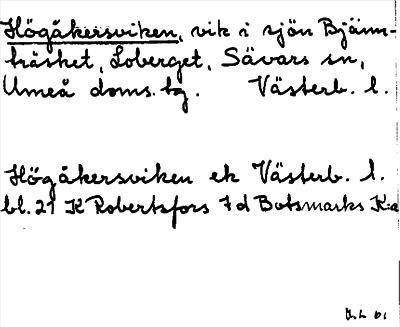 Högåkersviken, vik i sjön Bjänn-
träsket, Loberget, Sävars sn,
Umeå doms. tg. Västerb. l.
Högåkersviken ek Västerb. l.
bl. 21 K Robertsfors 7 d Botsmarks K:a